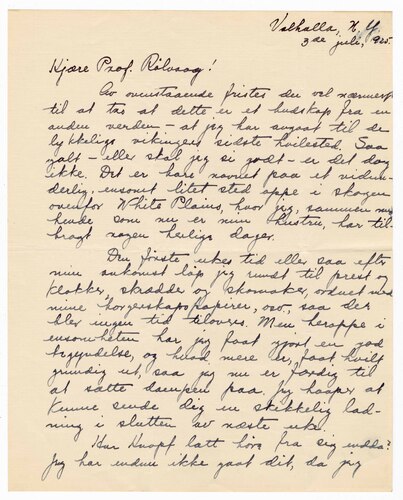 Valhalla, N.Y.
3de juli, 1925.
Kjære Prof. Rölvaag!
Av ovenstaaende fristes du vel nærmest
til at tro at dette er et budskap fra en
anden verden – at jeg har avgaat til de
lykkelige vikingers sidste hvilested. Saa
galt – eller skal jeg si godt – er det dog
ikke. Det er bare navnet paa et vidun-
derlig, ensomt litet sted oppe i skogen
ovenfor White Plains, hvor jeg, sammen med
hende som nu er min hustru, har til-
bragt nogen herlige dager.
Den første ukes tid eller saa efter
min ankomst løp jeg rundt til prest og
klokker, skrædder og skomaker, ordnet med
mine borgerskapspapirer, osv., saa der
blev ingen tid tilovers. Men heroppe i
ensomheten har jeg faat gjort en god
begyndelse, og hvad mere er, faat hvilt
grundig ut, saa jeg nu er færdig til
at sætte dampen paa. Jeg haaper at
kunne sende dig en skikkelig lad-
ning i slutten av næste uke.
Har Knopf latt høre fra sig endda?
Jeg har endnu ikke gaat dit, da jeg